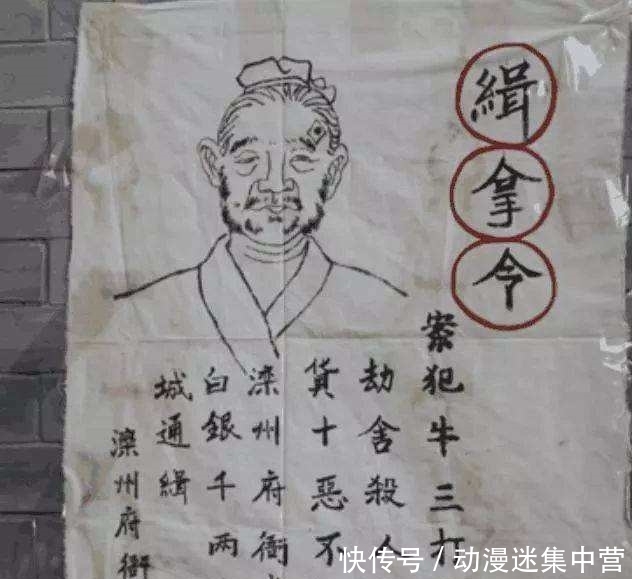 緝拿令
案犯牛三打
劫舍殺人
貨十惡不
滦州府衙
白銀千兩
城通緝
滦州府衙
快传号/动漫迷集中营